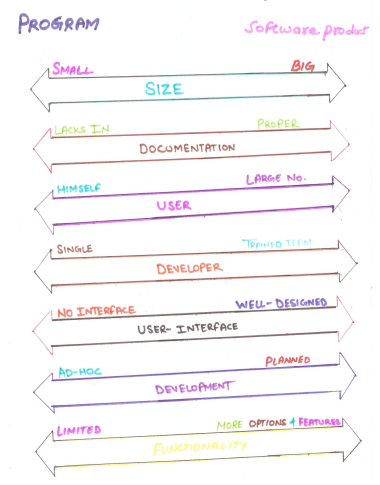 PROGRAM Software product
SMALL BIG
SIZE
LACKS IN PROPER
DOCUMENTATION
HIMSELF LARGE NO.
USER
SINGLE TRAINED TEAM
DEVELOPER
NO INTERFACE WELL-DESIGNED
USER-INTERFACE
AD-HOC PLANNED
DEVELOPMENT
LIMITED MORE OPTIONS & FEATURES
FUNCTIONALITY